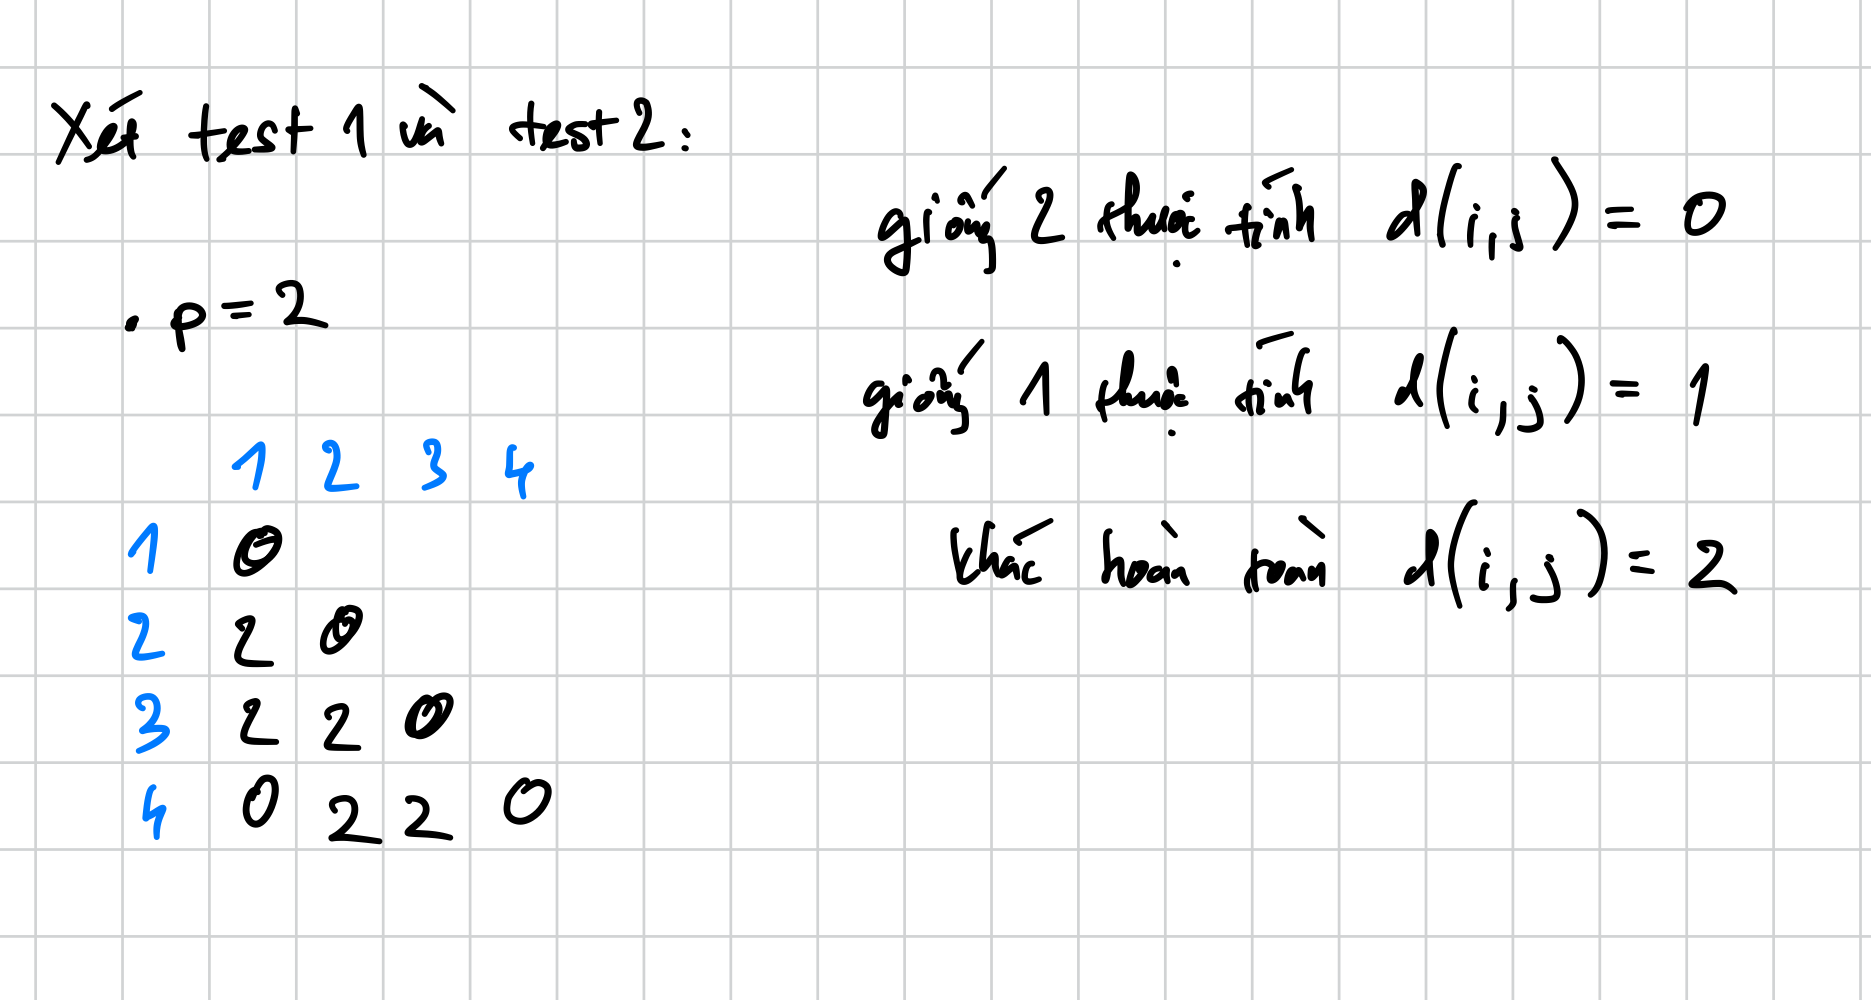 Xét test 1 và test 2:
. p = 2
1 2 3 4
1 0
2 2 0
3 2 2 0
4 0 2 2 0
giống 2 thuộc tính d(i,j) = 0
giống 1 thuộc tính d(i,j) = 1
khác hoàn toàn d(i,j) = 2